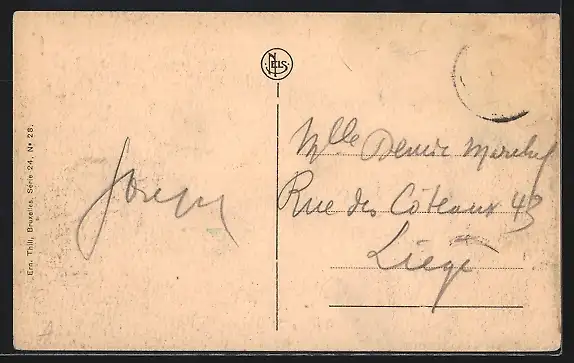 NELS
Ern. Thill, Bruxelles. Série 24, No 28.
Joseph
Mlle Denise Marchal
Rue des Côteaux 43
Liège
A